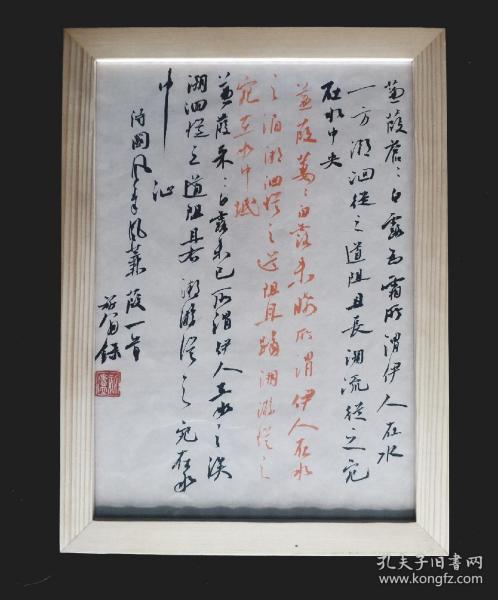 蒹葭蒼:白露為霜所謂伊人在水
一方溯洄從之道阻且長溯流從之宛
在水中央
蒹葭萋:白露未晞所謂伊人在水
之湄溯洄從之道阻且躋溯游從之
宛在水中坻
蒹葭采:白露未已所謂伊人在水之涘
溯洄從之道阻且右溯游從之宛在水
中沚
詩國風秦風蒹葭一首
錄
孔夫子旧书网
www.kongfz.com